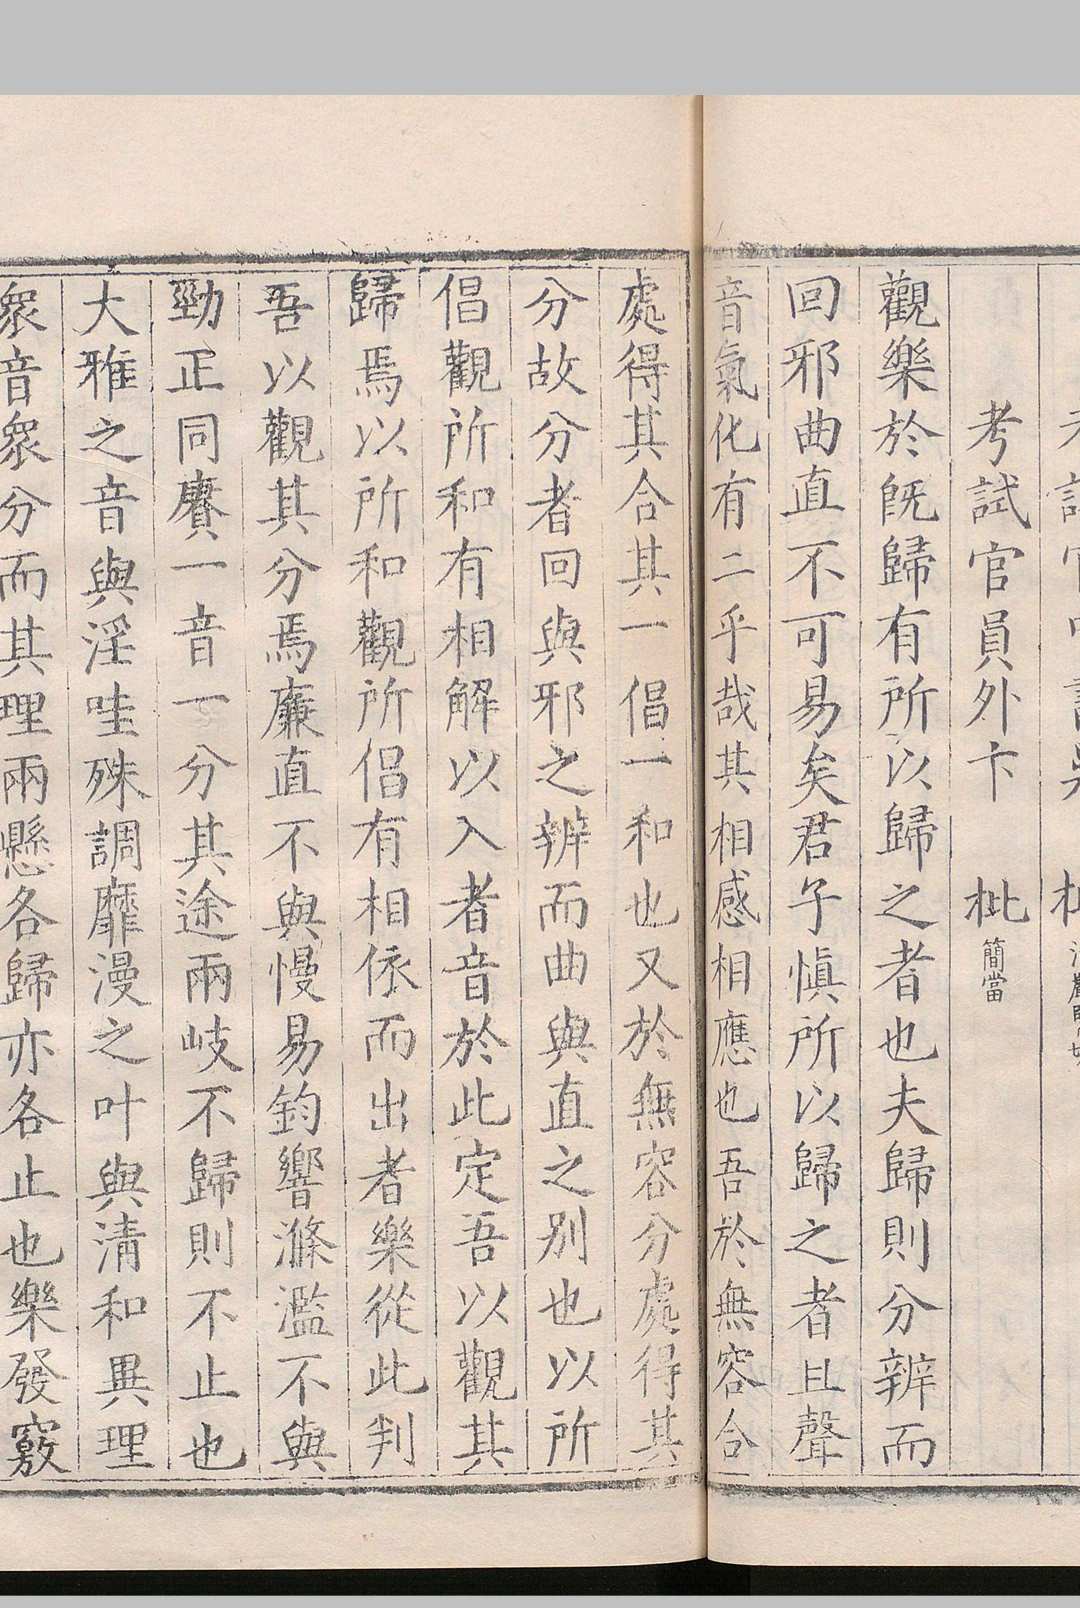 考試官員外卞　　枇簡當
觀樂於旣歸有所以歸之者也夫歸則分辨而
回邪曲直不可易矣君子愼所以歸之者且聲
音氣化有二乎哉其相感相應也吾於無容合
處得其合其一倡一和也又於無容分處得其
分故分者回與邪之辨而曲與直之别也以所
倡觀所和有相解以入者音於此定吾以觀其
歸焉以所和觀所倡有相依而出者樂從此判
吾以觀其分焉廉直不與慢易鈞響滌濫不與
勁正同賡一音一分其途兩岐不歸則不止也
大雅之音與淫哇殊調靡漫之叶與清和異理
衆音衆分而其理兩懸各歸亦各止也樂發竅